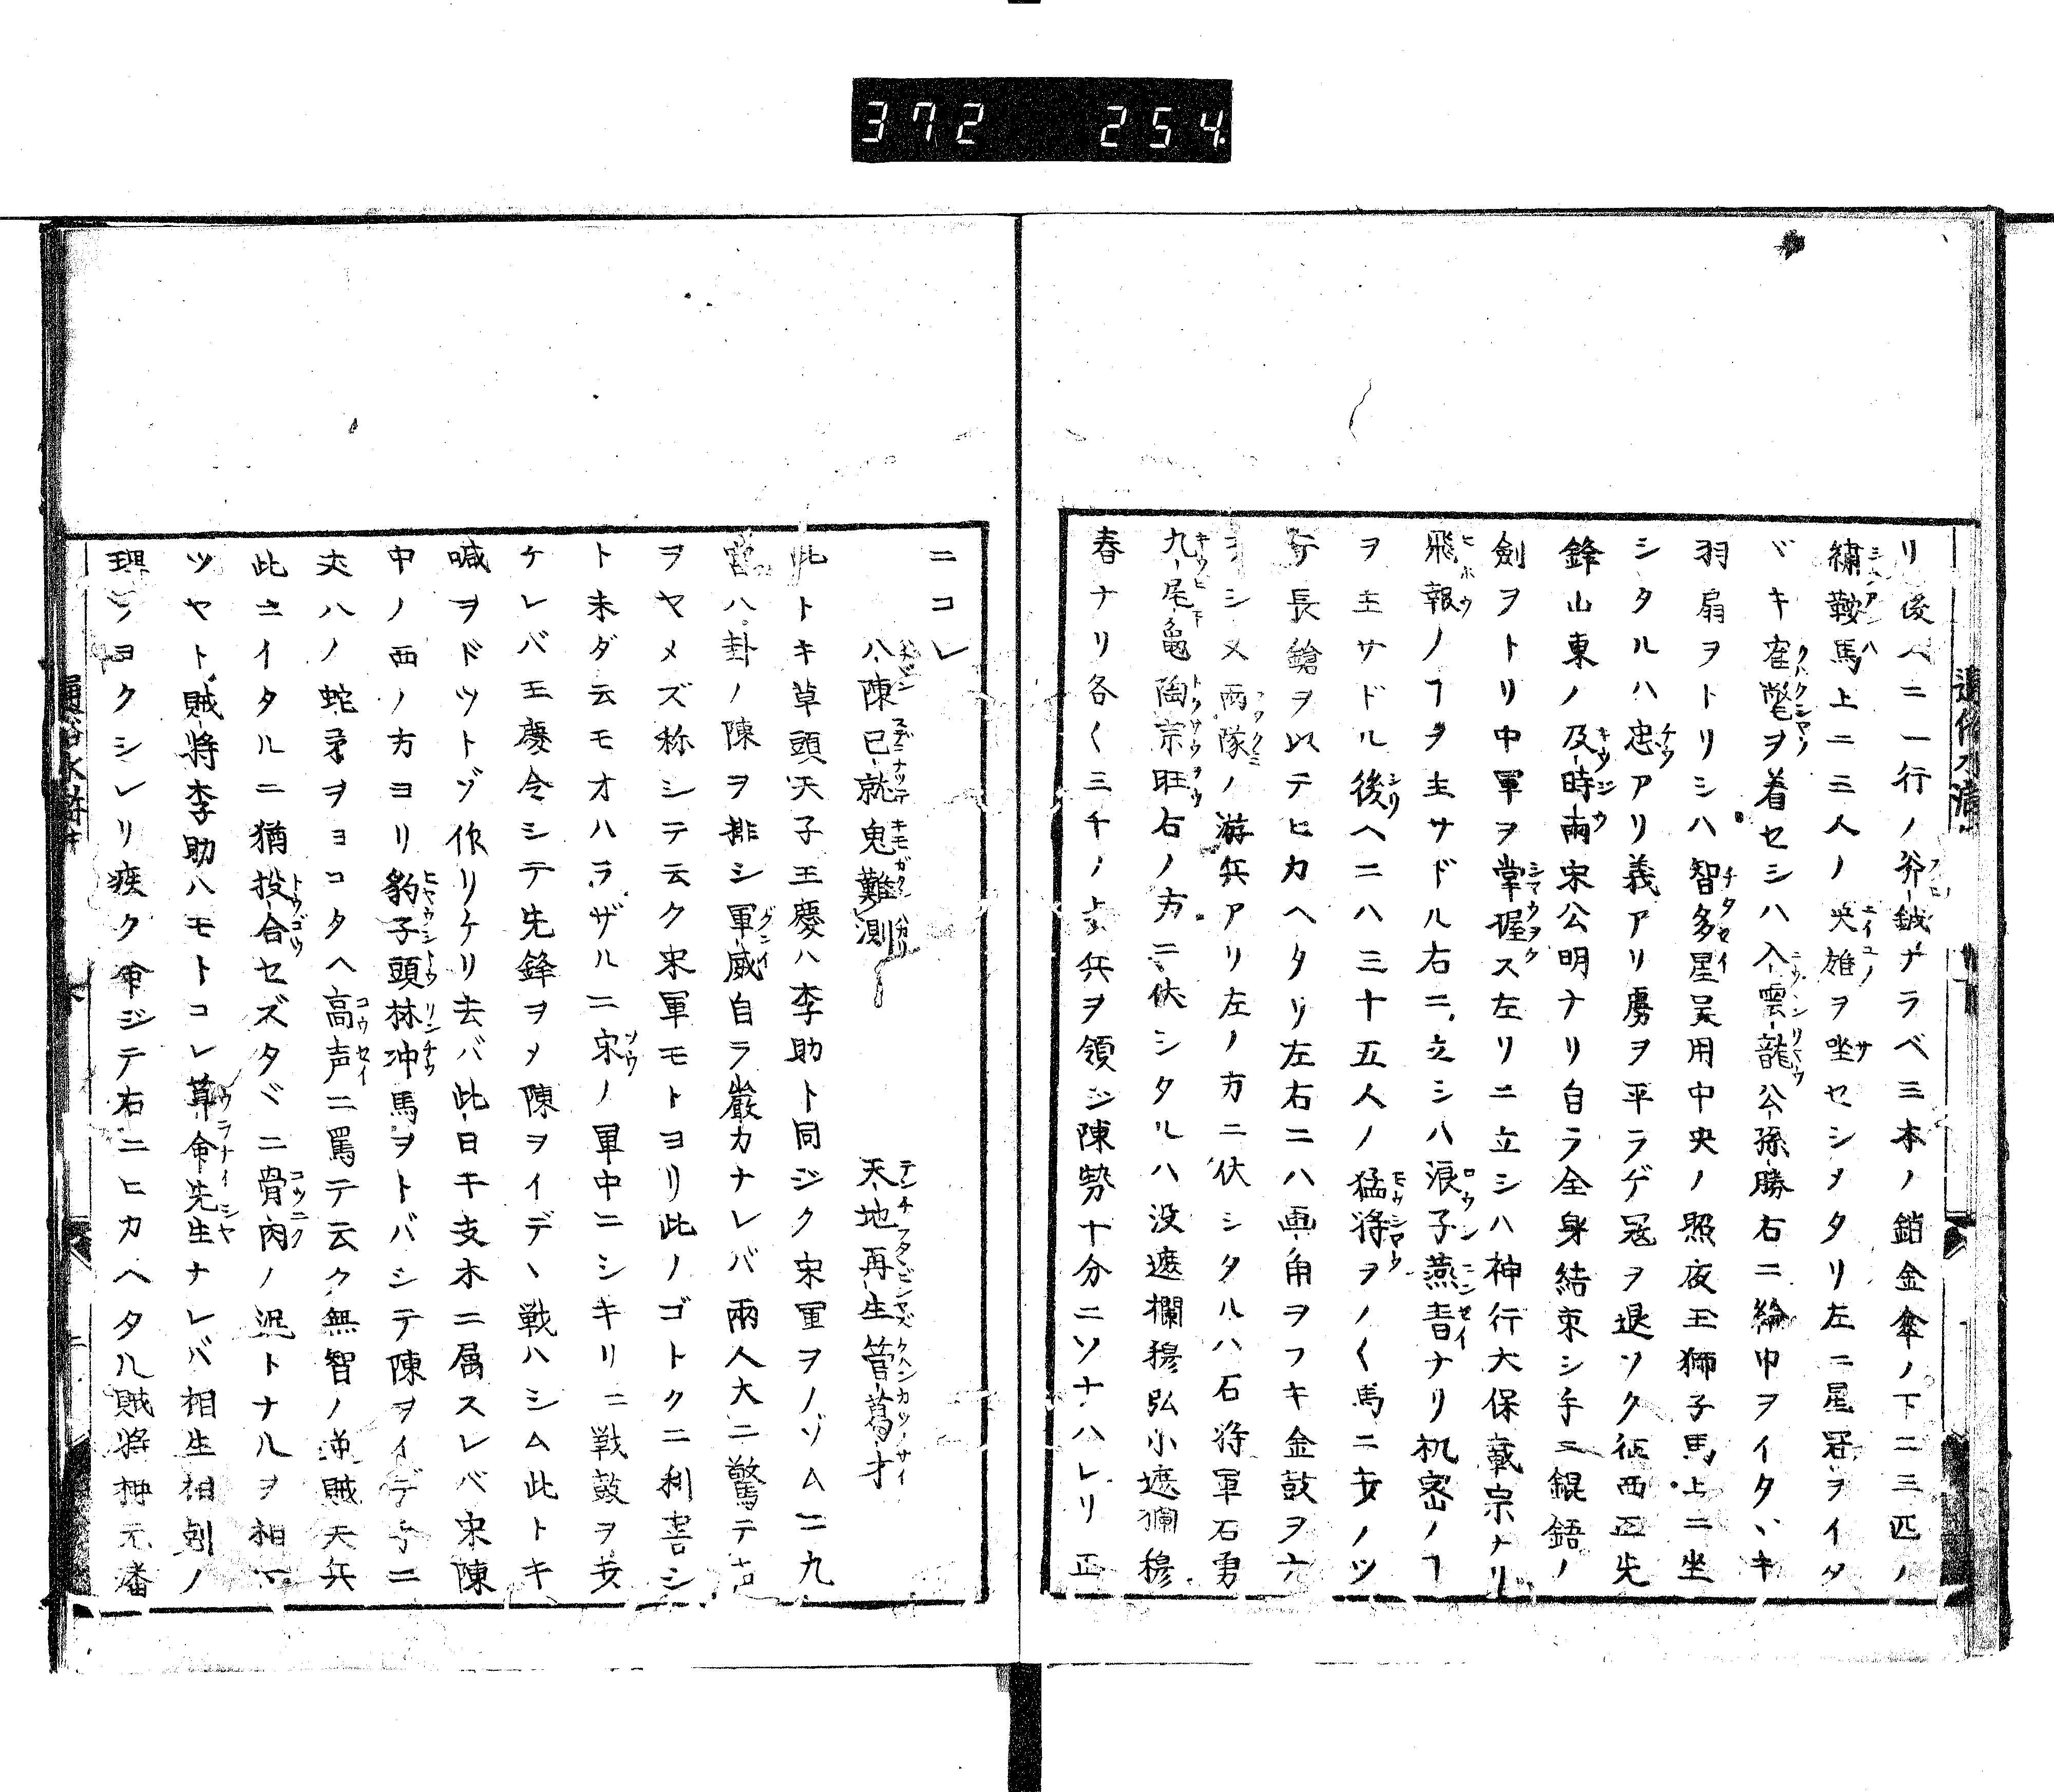 372 254
リ後ヘニ一行ノ斧鉞ナラベ三本ノ銷金傘ノ下ニ三匹ノ
繍鞍馬上ニ三人ノ英雄ヲ坐セシメタリ左ニ星冠ヲイタ
ヾキ寉氅ヲ着セシハ入雲龍公孫勝右ニ綸巾ヲイタヾキ
羽扇ヲトリシハ智多星呉用中央ノ照夜玉獅子馬上ニ坐
シタルハ忠アリ義アリ虜ヲ平ラゲ冦ヲ退ソク征西正先
鋒山東ノ及時雨宋公明ナリ自ラ全身結束シ手ニ錕鋙ノ
劍ヲトリ中軍ヲ掌握ス左リニ立シハ神行大保戴宗ナリ
飛報ノヿヲ主サドル右ニ立シハ浪子燕青ナリ机密ノヿ
ヲ主サドル後ヘニハ三十五人ノ猛将ヲノ〱馬ニ
テ長鎗ヲ以テヒカヘタリ左右ニハ画角ヲフキ金鼓ヲナ
ラシ又兩隊ノ游兵アリ左ノ方ニ伏シタルハ石将軍石勇
九尾亀陶宗旺右ノ方ニ伏シタルハ没遮欄穆弘小遮攔穆
春ナリ各〱三千ノ歩兵ヲ領シ陳勢十分ニソナハレリ正
ニコレ
八陳已就鬼難測 天地再生管葛才
此トキ草頭天子王慶ハ李助ト同ジク宋軍ヲノゾムニ九
宮八卦ノ陳ヲ排シ軍威自ラ嚴カナレバ兩人大ニ驚テ
ヲヤメズ称シテ云ク宋軍モトヨリ此ノゴトクニ利害シ
ト未ダ云モオハラザルニ宋ノ軍中ニシキリニ戦鼓ヲ
ケレバ王慶令シテ先鋒ヲメ陳ヲイデヽ戦ハシム此トキ
喊ヲドツトゾ作リケリ去バ此日干支木ニ属スレバ宋陳
中ノ西ノ方ヨリ豹子頭林冲馬ヲトバシテ陳ヲイデ手ニ
丈八ノ蛇矛ヲヨコタヘ高声ニ罵テ云ク無智ノ逆賊天兵
此ニイタルニ猶投合セズタヾニ骨肉ノ泥トナルヲ相
ツヤト賊将李助ハモトコレ算命先生ナレバ相生相剋ノ
理ヲヨクシレリ疾ク命ジテ右ニヒカヘタル賊将